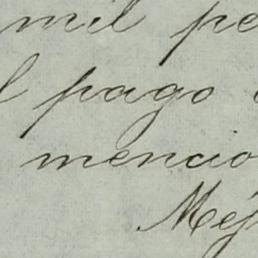 mil pe
l pago
mencio
Méj